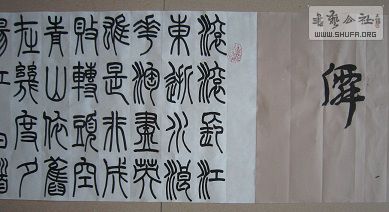 书艺公社
WWW.SHUFA.ORG
滾滾長江
東逝水浪
花淘盡英
雄是非成
敗轉頭空
青山依舊
在幾度夕
陽紅白